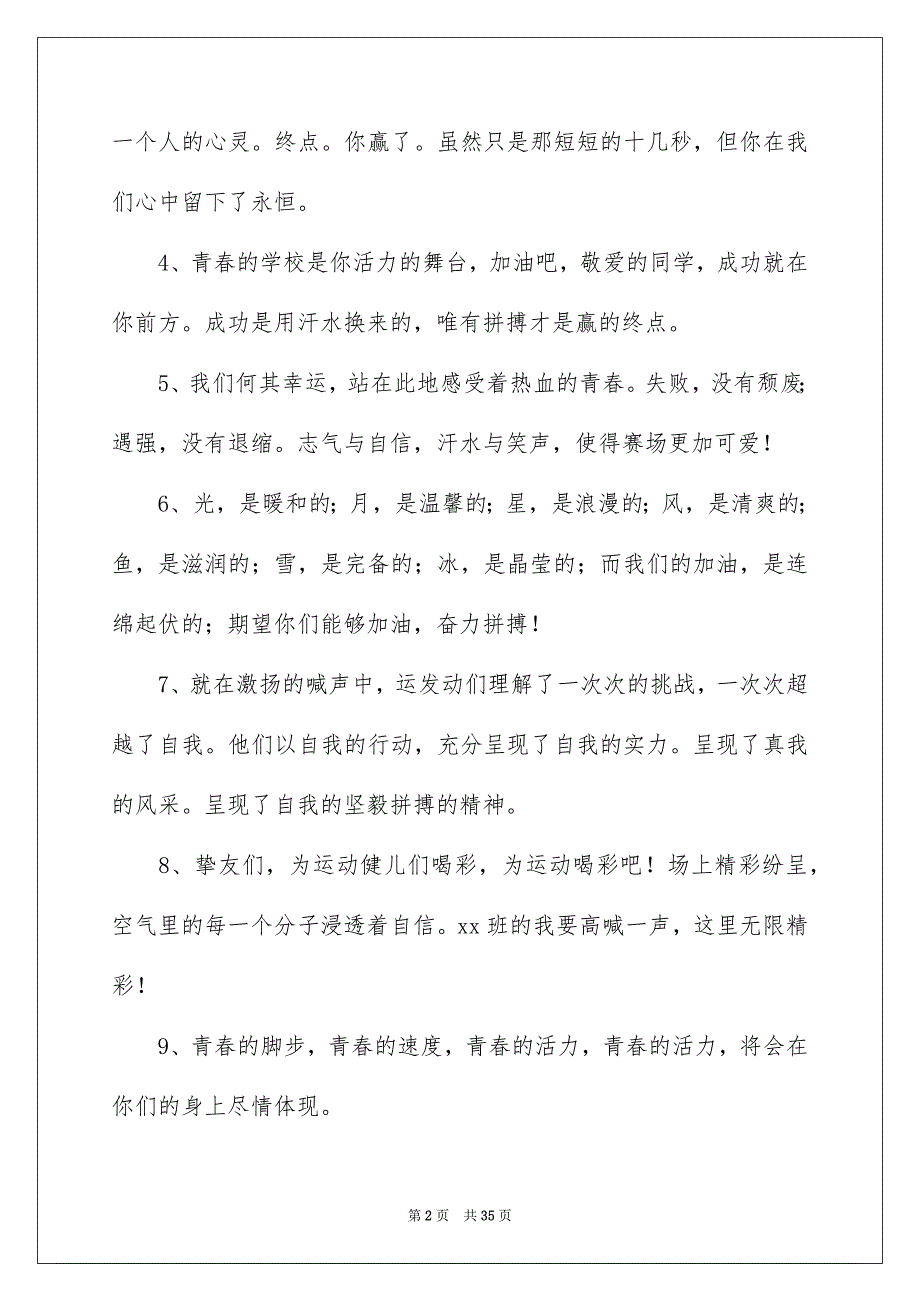 一个人的心灵。终点。你赢了。虽然只是那短短的十几秒，但你在我
们心中留下了永恒。
4、青春的学校是你活力的舞台，加油吧，敬爱的同学，成功就在
你前方。成功是用汗水换来的，唯有拼搏才是赢的终点。
5、我们何其幸运，站在此地感受着热血的青春。失败，没有颓废；
遇强，没有退缩。志气与自信，汗水与笑声，使得赛场更加可爱！
6、光，是暖和的；月，是温馨的；星，是浪漫的；风，是清爽的；
鱼，是滋润的；雪，是完备的；冰，是晶莹的；而我们的加油，是连
绵起伏的；期望你们能够加油，奋力拼搏！
7、就在激扬的喊声中，运发动们理解了一次次的挑战，一次次超
越了自我。他们以自我的行动，充分呈现了自我的实力。呈现了真我
的风采。呈现了自我的坚毅拼搏的精神。
8、挚友们，为运动健儿们喝彩，为运动喝彩吧！场上精彩纷呈，
空气里的每一个分子浸透着自信。xx 班的我要高喊一声，这里无限精
彩！
9、青春的脚步，青春的速度，青春的活力，青春的活力，将会在
你们的身上尽情体现。
第 2 页 共 35 页